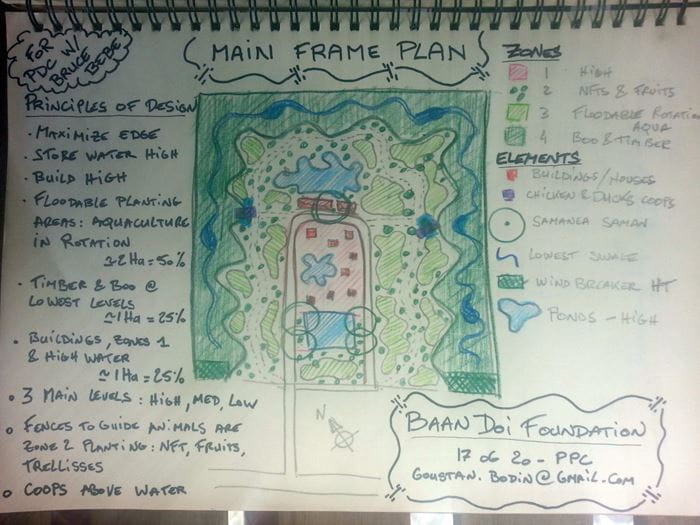 FOR
PDC W/
BRUCE
BEBE
MAIN FRAME PLAN
PRINCIPLES OF DESIGN
· MAXIMIZE EDGE
· STORE WATER HIGH
· BUILD HIGH
· FLOODABLE PLANTING
AREAS: AQUACULTURE
IN ROTATION
≃2Ha = 50%
· TIMBER & BOO @
LOWEST LEVELS
≃1Ha = 25%
· BUILDINGS, ZONES 1
& HIGH WATER
≃1Ha = 25%
· 3 MAIN LEVELS: HIGH, MED, LOW
· FENCES TO GUIDE ANIMALS ARE
ZONE 2 PLANTING: NFT, FRUITS,
TRELLISSES
· COOPS ABOVE WATER
ZONES
1 HIGH
2 NFTS & FRUITS
3 FLOODABLE ROTATION
AQUA
4 BOO & TIMBER
ELEMENTS
BUILDINGS/HOUSES
CHICKEN & DUCKS COOPS
SAMANEA SAMAN
LOWEST SWALE
WIND BREAKER HT
PONDS - HIGH
N
BAAN DOI FOUNDATION
17 06 20 - PPC
GOUSTAN.BODIN@GMAIL.COM